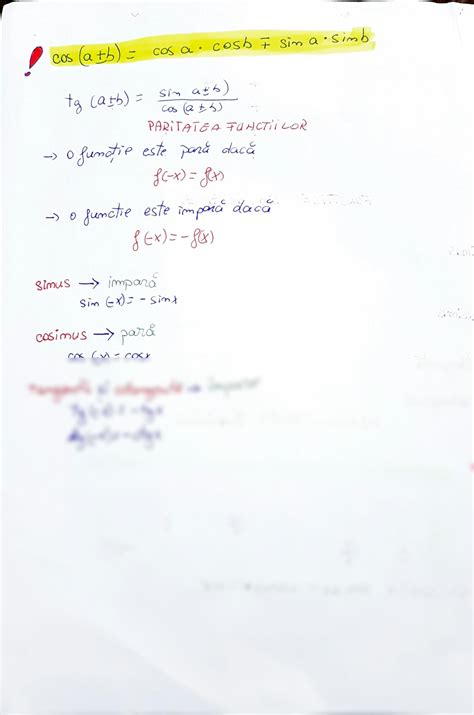 ! cos (a±b) = cos a · cos b ∓ sin a · sin b
tg (a±b) = sin a±b) / cos (a±b)
PARITATEA FUNCTIILOR
→ o funcție este pară dacă
f(-x) = f(x)
→ o functie este impară dacă
f(-x) = - f(x)
sinus → impară
sin (-x) = - sin x
cosinus → pară
cos (-x) = cos x